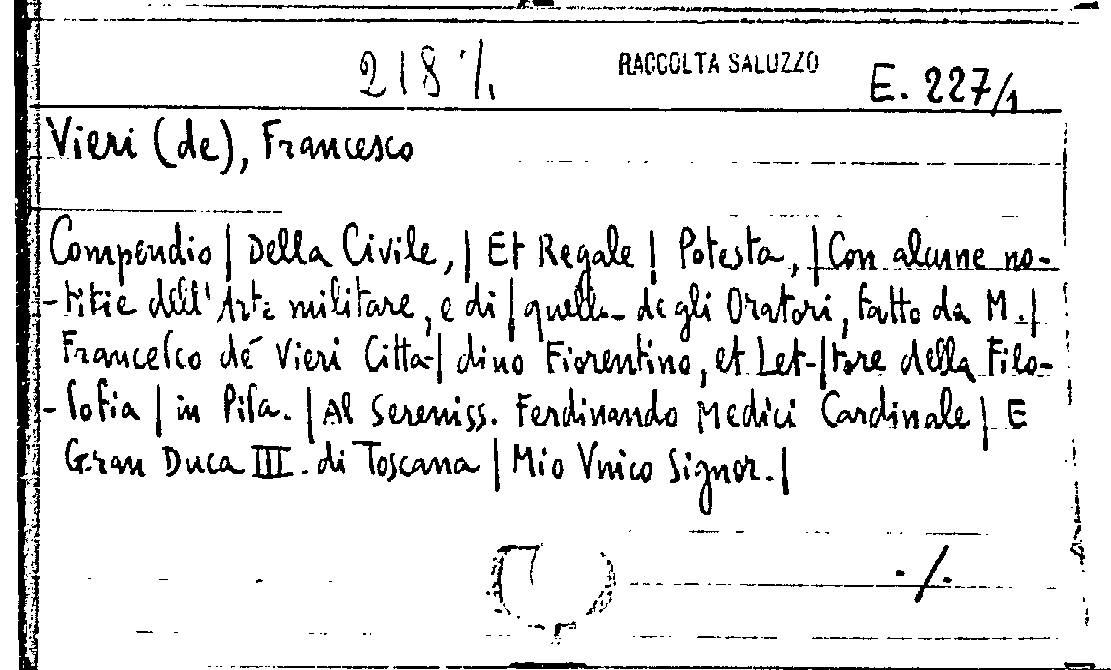 218 ·/. RACCOLTA SALUZZO E. 227/1
Vieri (de), Francesco
Compendio | Della Civile, | Et Regale | Potesta, | Con alcune no-
-titie dell' Arte militare, e di | quella degli Oratori, fatto da M. |
Francesco de' Vieri Citta- | dino Fiorentino, et Let- | tore della Filo-
-sofia | in Pisa. | Al Sereniss. Ferdinando Medici Cardinale | E
Gran Duca III. di Toscana | Mio Vnico Signor. |
·/.